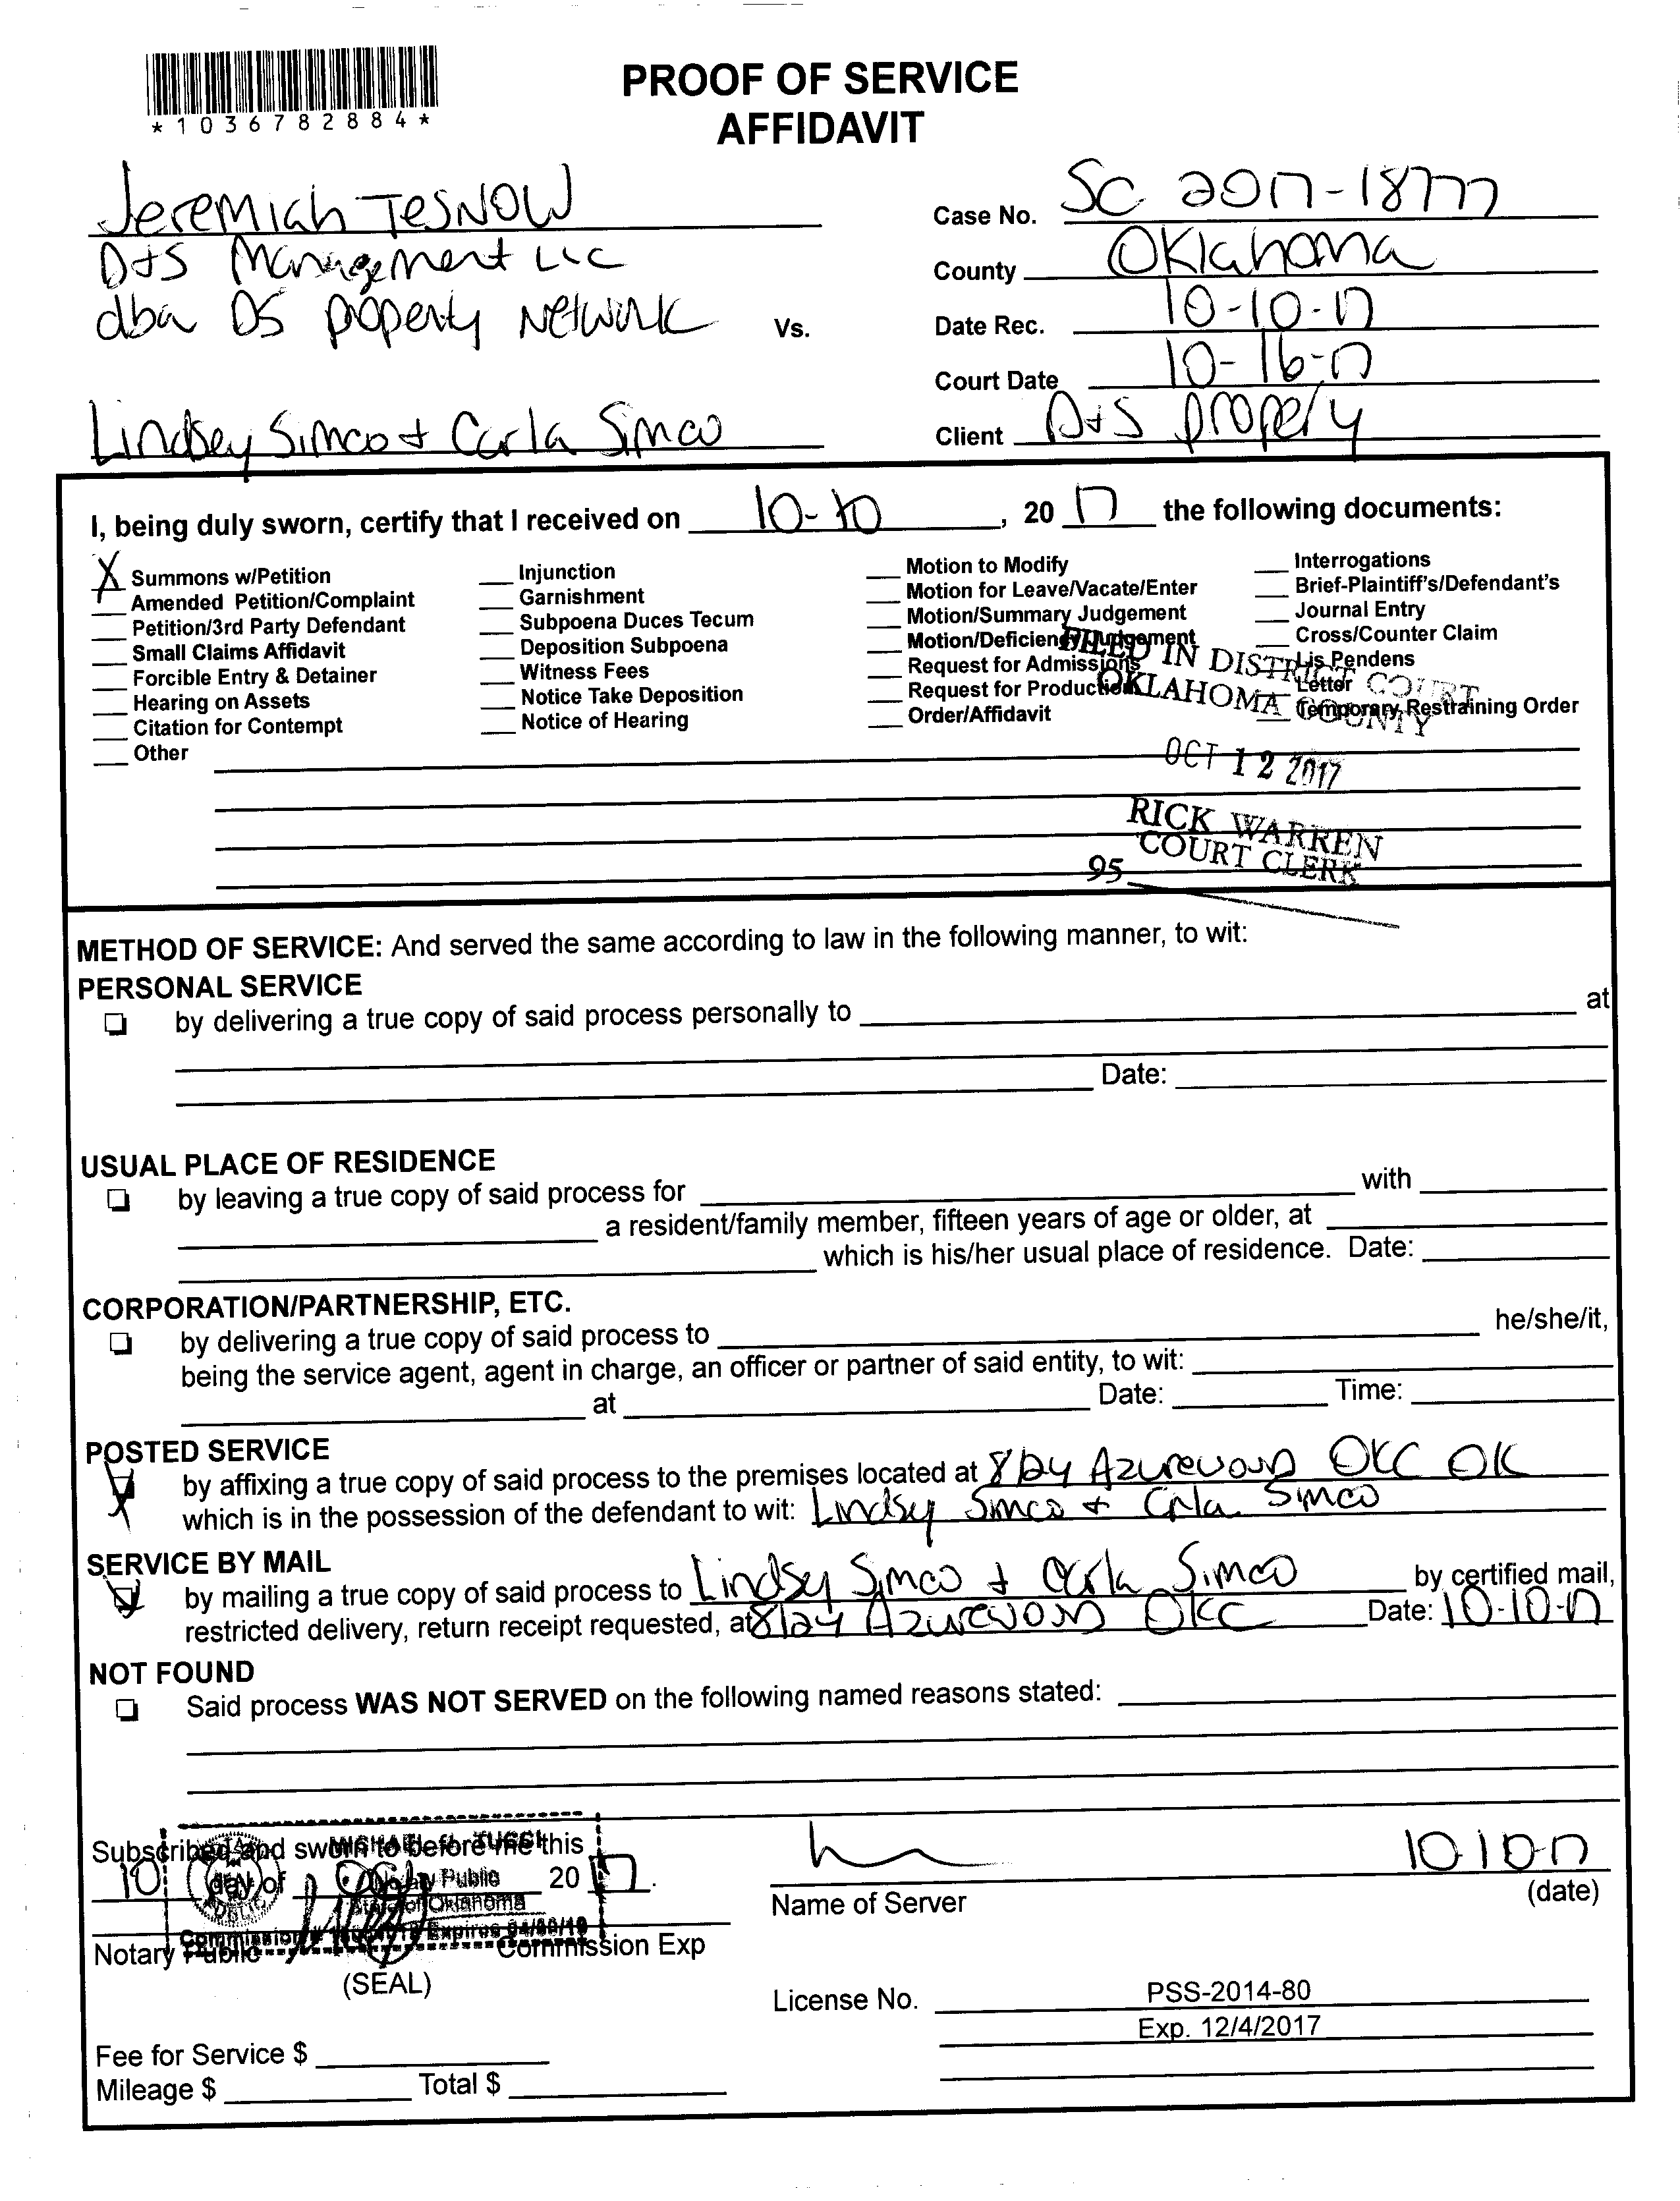 *1036782884*
PROOF OF SERVICE
AFFIDAVIT
Jeremiah TesNOW
D+S Management LLC
dba DS property Network
Vs.
Lindsey Simco + Carla Simco
Case No. SC 2017-18777
County Oklahoma
Date Rec. 10-10-17
Court Date 10-16-17
Client D+S property
I, being duly sworn, certify that I received on 10-10, 20 17 the following documents:
X Summons w/Petition
Amended Petition/Complaint
Petition/3rd Party Defendant
Small Claims Affidavit
Forcible Entry & Detainer
Hearing on Assets
Citation for Contempt
Other
Injunction
Garnishment
Subpoena Duces Tecum
Deposition Subpoena
Witness Fees
Notice Take Deposition
Notice of Hearing
Motion to Modify
Motion for Leave/Vacate/Enter
Motion/Summary Judgement
Motion/Deficiency Judgement
Request for Admissions
Request for Production
Order/Affidavit
Interrogations
Brief-Plaintiff's/Defendant's
Journal Entry
Cross/Counter Claim
Lis Pendens
Letter
Temporary Restraining Order
FILED IN DISTRICT COURT
OKLAHOMA COUNTY
OCT 12 2017
RICK WARREN
COURT CLERK
95
METHOD OF SERVICE: And served the same according to law in the following manner, to wit:
PERSONAL SERVICE
by delivering a true copy of said process personally to at
Date:
USUAL PLACE OF RESIDENCE
by leaving a true copy of said process for with
a resident/family member, fifteen years of age or older, at
which is his/her usual place of residence. Date:
CORPORATION/PARTNERSHIP, ETC.
by delivering a true copy of said process to he/she/it,
being the service agent, agent in charge, an officer or partner of said entity, to wit:
at Date: Time:
POSTED SERVICE
by affixing a true copy of said process to the premises located at 8124 Azurewood OKC OK
which is in the possession of the defendant to wit: Lindsey Simco + Carla Simco
SERVICE BY MAIL
by mailing a true copy of said process to Lindsey Simco + Carla Simco by certified mail,
restricted delivery, return receipt requested, at 8124 Azurewood OKC Date: 10-10-17
NOT FOUND
Said process WAS NOT SERVED on the following named reasons stated:
Subscribed and sworn to before me this
10 day of Oct 20 17.
MICHAEL J. TUCCI
Notary Public
State of Oklahoma
Commission # Expires
Notary Public Commission Exp
(SEAL)
10 10-17
Name of Server (date)
License No. PSS-2014-80
Exp. 12/4/2017
Fee for Service $
Mileage $ Total $